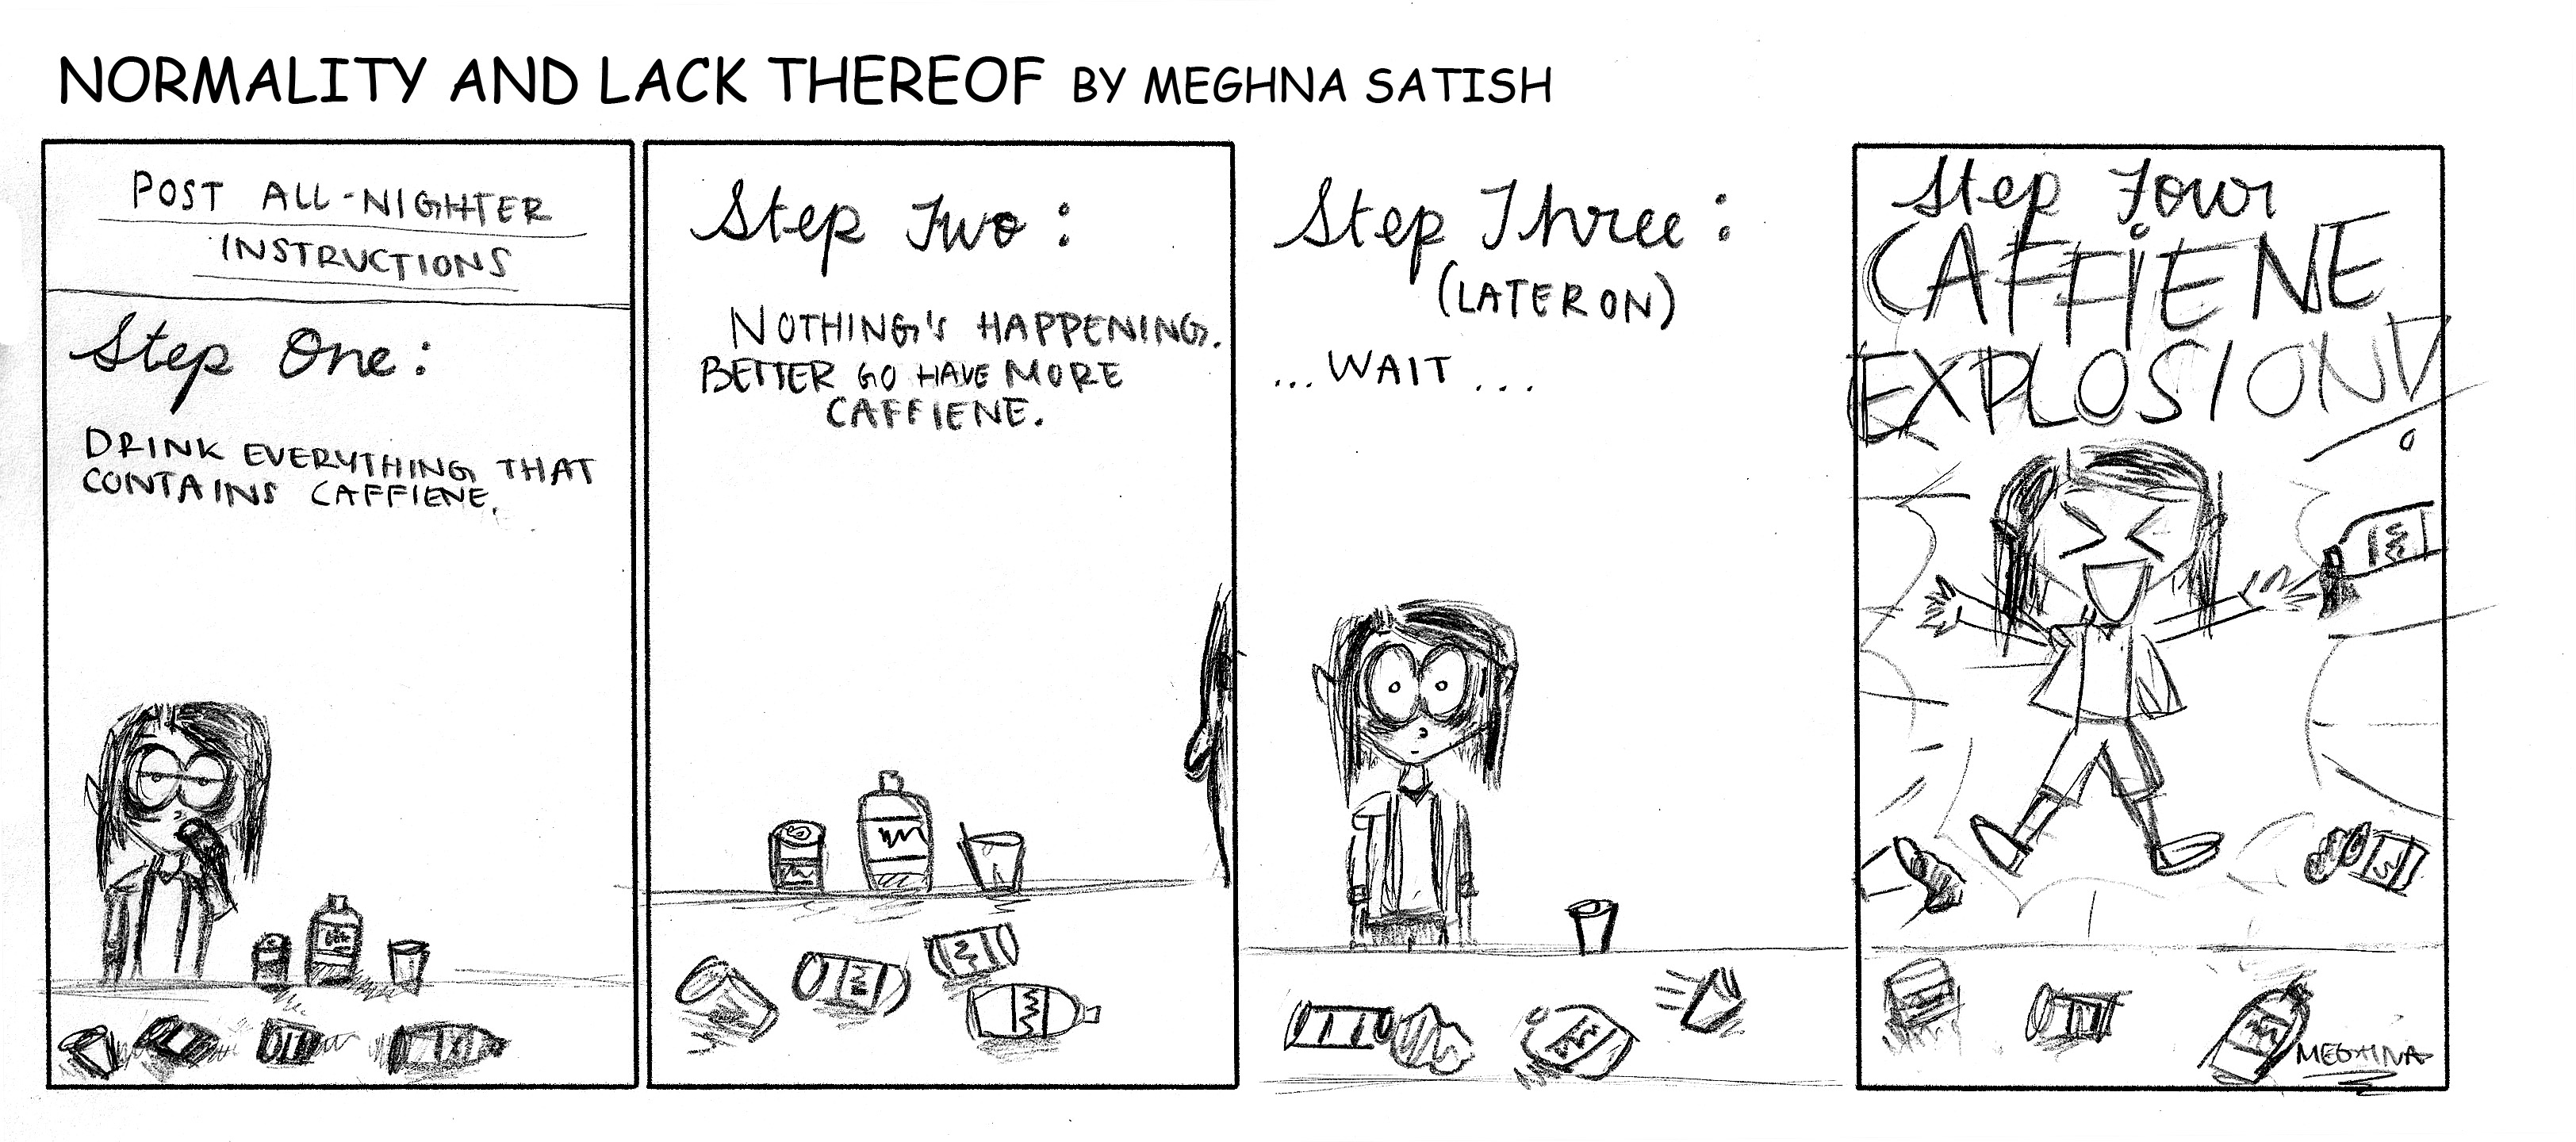 NORMALITY AND LACK THEREOF BY MEGHNA SATISH
POST ALL-NIGHTER
INSTRUCTIONS
Step One:
DRINK EVERYTHING THAT
CONTAINS CAFFIENE.
Step Two:
NOTHING'S HAPPENING.
BETTER GO HAVE MORE
CAFFIENE.
Step Three:
(LATER ON)
...WAIT...
Step Four
CAFFiENE
EXPLOSION!
MEGHNA